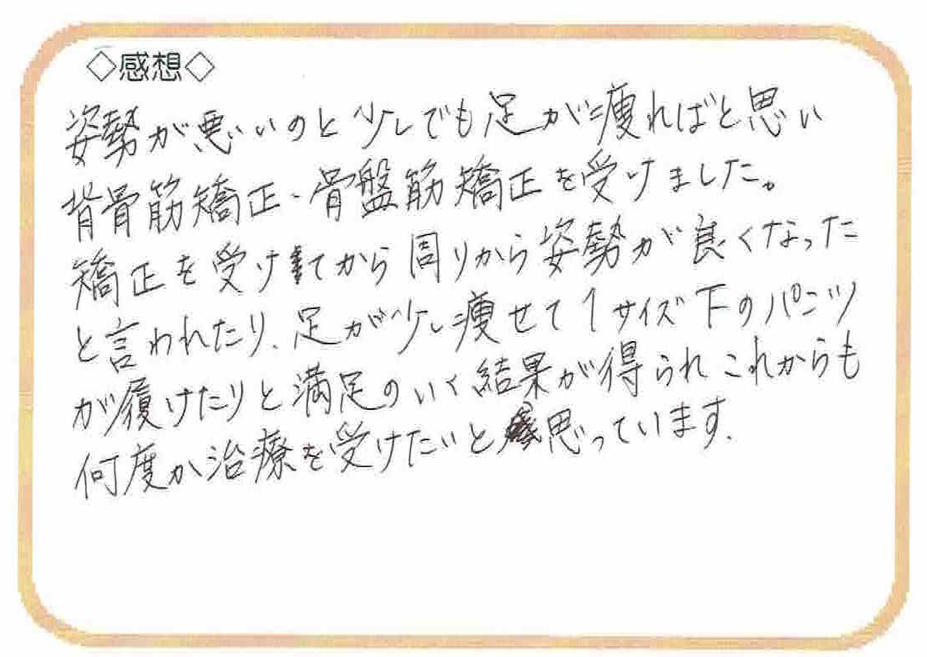 ◇感想◇
姿勢が悪いのと少しでも足が痩ればと思い
背骨筋矯正・骨盤筋矯正を受けました。
矯正を受けてから周りから姿勢が良くなった
と言われたり、足が少し痩せて1サイズ下のパンツ
が履けたりと満足のいく結果が得られこれからも
何度か治療を受けたいと思っています.